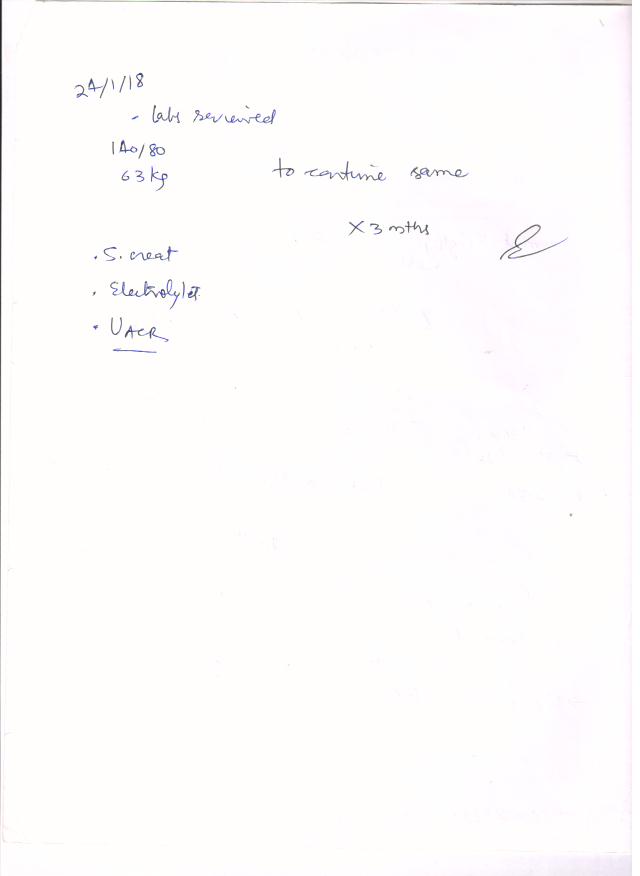 24/1/18
- labs reviewed
140/80
63 kg
to continue same
x 3 mths
. S. creat
. Electrolytes
. UACR